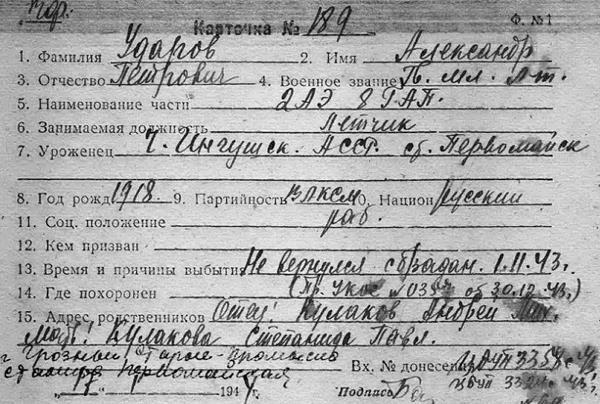 Карточка № 189 Ф. №1
1. Фамилия Ударов 2. Имя Александр
3. Отчество Петрович 4. Военное звание Гв. мл. Лт.
5. Наименование части 2 АЭ 8 ГАП.
6. Занимаемая должность Летчик
7. Уроженец Ч. Ингушск. АССР. ст. Первомайск
8. Год рожд. 1918. 9. Партийность ВЛКСМ 10. Национ. Русский
11. Соц. положение раб.
12. Кем призван
13. Время и причины выбытия Не вернулся с б/задан. 1.11.43.
14. Где похоронен (Пр. Укос № 0357 от 30.12.43.)
15. Адрес родственников Отец: Кулаков Андрей
Мать: Кулакова Степанида Павл.
г. Грозный Старые-Промысла
станица Первомайская Вх. № донесения
194 4 г. Подпись